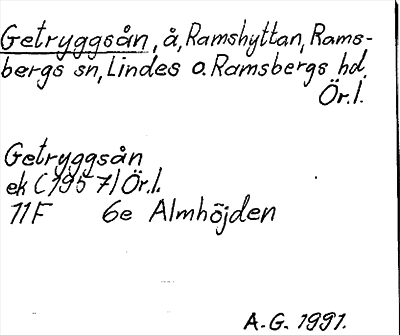 Getryggsån, å, Ramshyttan, Rams-
bergs sn, Lindes o. Ramsbergs hd.
Ör.l.
Getryggsån
ek (1957) Ör.l.
11F 6e Almhöjden
A.G. 1991.